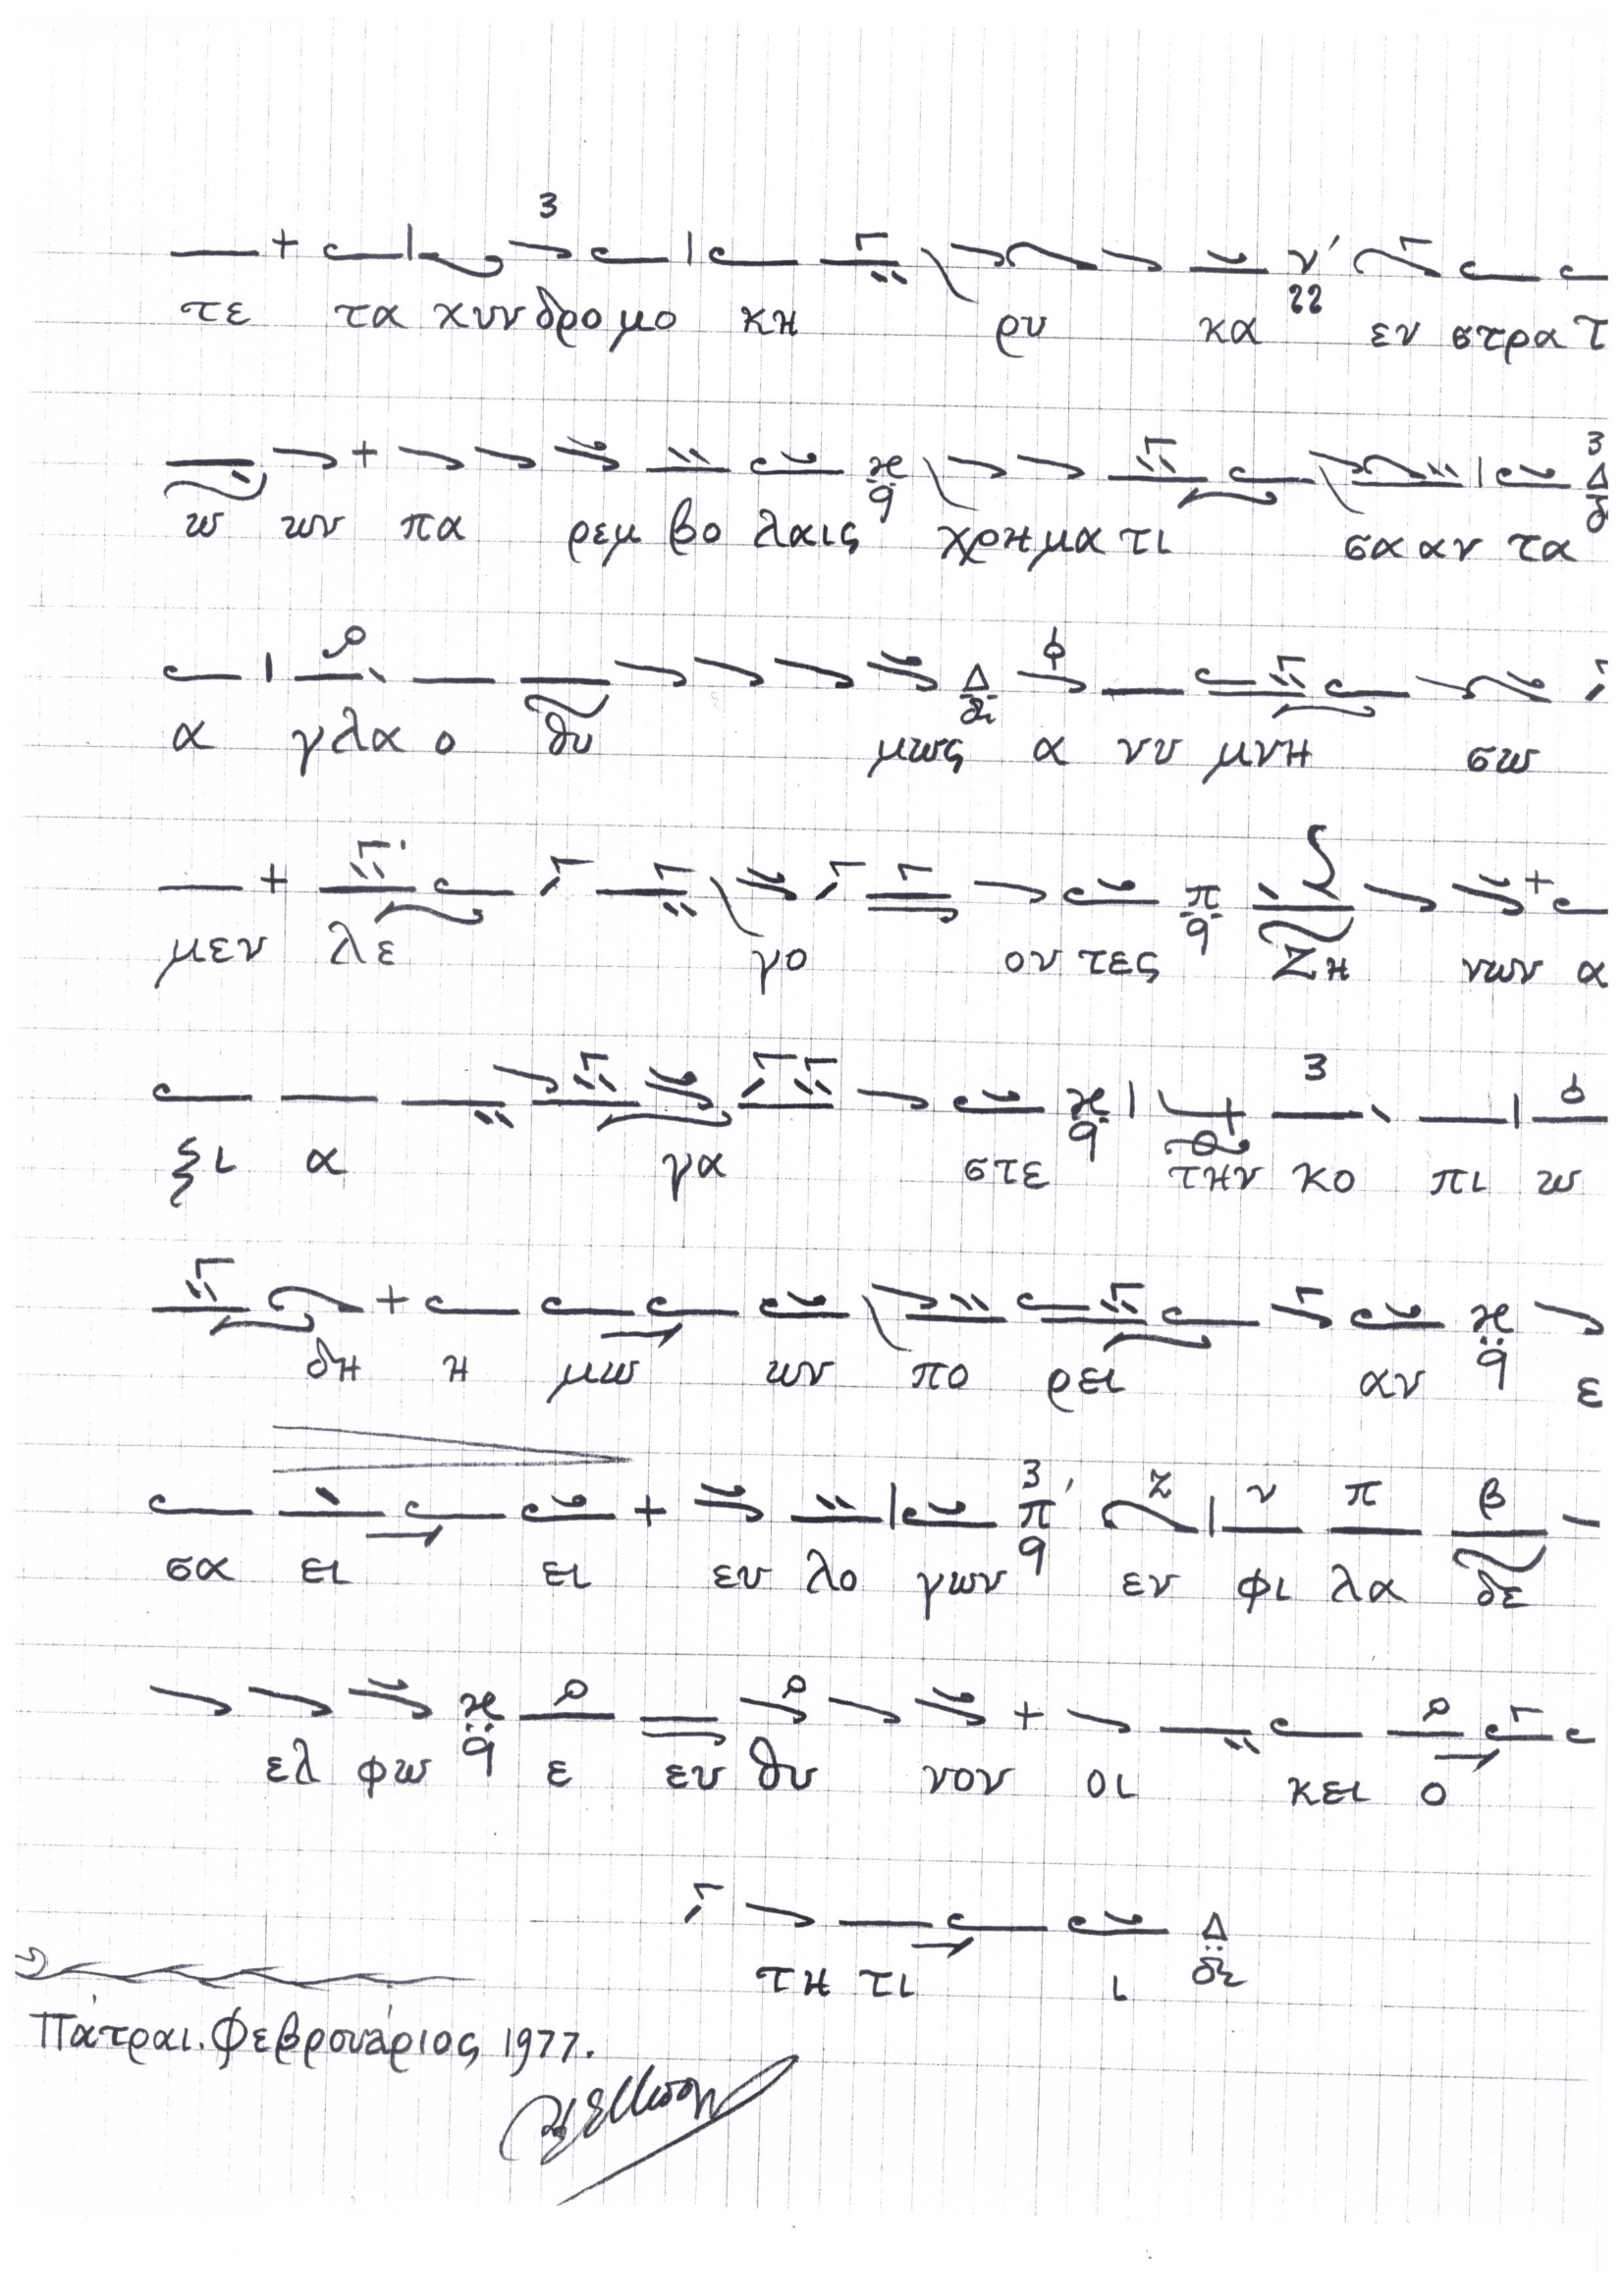 τε τα χυν δρο μο κη ρυ κα εν στρα τ
ω ων πα ρεμ βο λαις χρη μα τι σα αν τα
α γλα ο θυ μως α νυ μνη σω
μεν λε γο ον τες Ζη νων α
ξι α γα στε την κο πι ω
δη η μω ων πο ρει αν ε
σα ει ει ευ λο γων εν φι λα δε
ελ φω ε ευ θυ νον οι κει ο
τη τι ι
Πάτραι. Φεβρουάριος 1977.